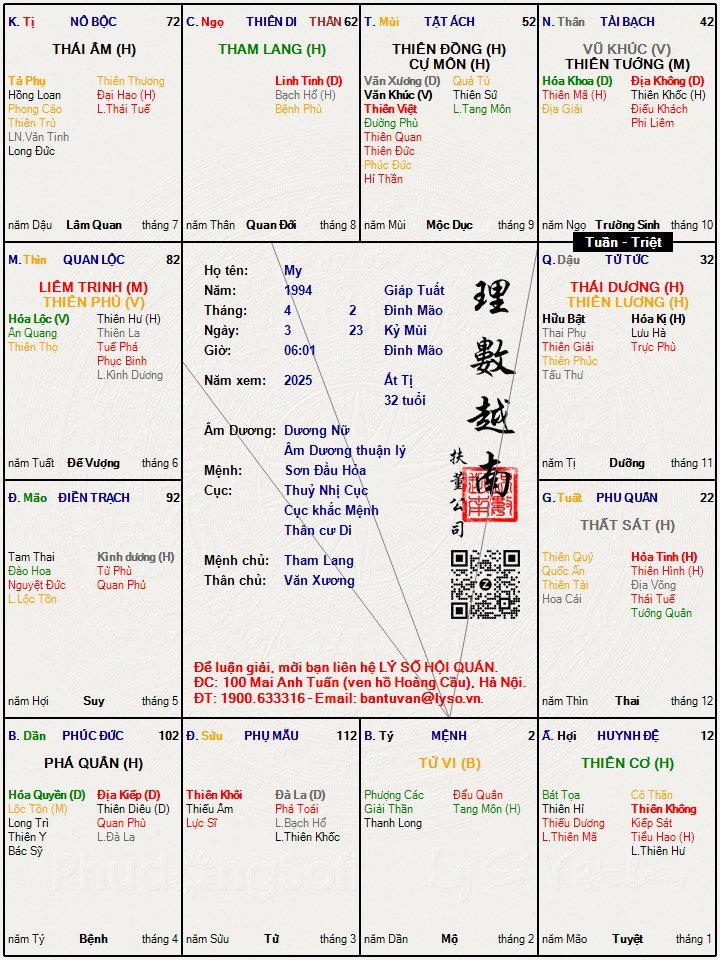 K. Tị NÔ BỘC 72
THÁI ÂM (H)
Tả Phụ Thiên Thương
Hồng Loan Đại Hao (H)
Phong Cáo L.Thái Tuế
Thiên Trù
LN.Văn Tinh
Long Đức
năm Dậu Lâm Quan tháng 7
C. Ngọ THIÊN DI THÂN 62
THAM LANG (H)
Linh Tinh (D)
Bạch Hổ (H)
Bệnh Phù
năm Thân Quan Đới tháng 8
T. Mùi TẬT ÁCH 52
THIÊN ĐỒNG (H)
CỰ MÔN (H)
Văn Xương (D) Quả Tú
Văn Khúc (V) Thiên Sứ
Thiên Việt L.Tang Môn
Đường Phù
Thiên Quan
Thiên Đức
Phúc Đức
Hỉ Thần
năm Mùi Mộc Dục tháng 9
N. Thân TÀI BẠCH 42
VŨ KHÚC (V)
THIÊN TƯỚNG (M)
Hóa Khoa (D) Địa Không (D)
Thiên Mã (H) Thiên Khốc (H)
Địa Giải Điếu Khách
Phi Liêm
năm Ngọ Trường Sinh tháng 10
Tuần - Triệt
M. Thìn QUAN LỘC 82
LIÊM TRINH (M)
THIÊN PHỦ (V)
Hóa Lộc (V) Thiên Hư (H)
Ân Quang Thiên La
Thiên Thọ Tuế Phá
Phục Binh
L.Kình Dương
năm Tuất Đế Vượng tháng 6
Họ tên: My
Năm: 1994 Giáp Tuất
Tháng: 4 2 Đinh Mão
Ngày: 3 23 Kỷ Mùi
Giờ: 06:01 Đinh Mão
Năm xem: 2025 Ất Tị
32 tuổi
Âm Dương: Dương Nữ
Âm Dương thuận lý
Mệnh: Sơn Đầu Hỏa
Cục: Thuỷ Nhị Cục
Cục khắc Mệnh
Thân cư Di
Mệnh chủ: Tham Lang
Thân chủ: Văn Xương
理數越南
扶董公司
Để luận giải, mời bạn liên hệ LÝ SỐ HỘI QUÁN.
ĐC: 100 Mai Anh Tuấn (ven hồ Hoàng Cầu), Hà Nội.
ĐT: 1900.633316 - Email: bantuvan@lyso.vn.
Q. Dậu TỬ TỨC 32
THÁI DƯƠNG (H)
THIÊN LƯƠNG (H)
Hữu Bật Hóa Kị (H)
Thai Phụ Lưu Hà
Thiên Giải Trực Phù
Thiên Phúc
Tấu Thư
năm Tị Dưỡng tháng 11
Đ. Mão ĐIỀN TRẠCH 92
Tam Thai Kình dương (H)
Đào Hoa Tử Phù
Nguyệt Đức Quan Phủ
L.Lộc Tồn
năm Hợi Suy tháng 5
G. Tuất PHU QUÂN 22
THẤT SÁT (H)
Thiên Quý Hỏa Tinh (H)
Quốc Ấn Thiên Hình (H)
Thiên Tài Địa Võng
Hoa Cái Thái Tuế
Tướng Quân
năm Thìn Thai tháng 12
B. Dần PHÚC ĐỨC 102
PHÁ QUÂN (H)
Hóa Quyền (D) Địa Kiếp (D)
Lộc Tồn (M) Thiên Diêu (D)
Long Trì Quan Phù
Thiên Y L.Đà La
Bác Sỹ
năm Tý Bệnh tháng 4
Đ. Sửu PHỤ MẪU 112
Thiên Khôi Đà La (D)
Thiếu Âm Phá Toái
Lực Sĩ L.Bạch Hổ
L.Thiên Khốc
năm Sửu Tử tháng 3
B. Tý MỆNH 2
TỬ VI (B)
Phượng Các Đẩu Quân
Giải Thần Tang Môn (H)
Thanh Long
năm Dần Mộ tháng 2
Ấ. Hợi HUYNH ĐỆ 12
THIÊN CƠ (H)
Bát Tọa Cô Thần
Thiên Hỉ Thiên Không
Thiếu Dương Kiếp Sát
L.Thiên Mã Tiểu Hao (H)
L.Thiên Hư
năm Mão Tuyệt tháng 1
Phudongsoft Lý Số Việt Nam